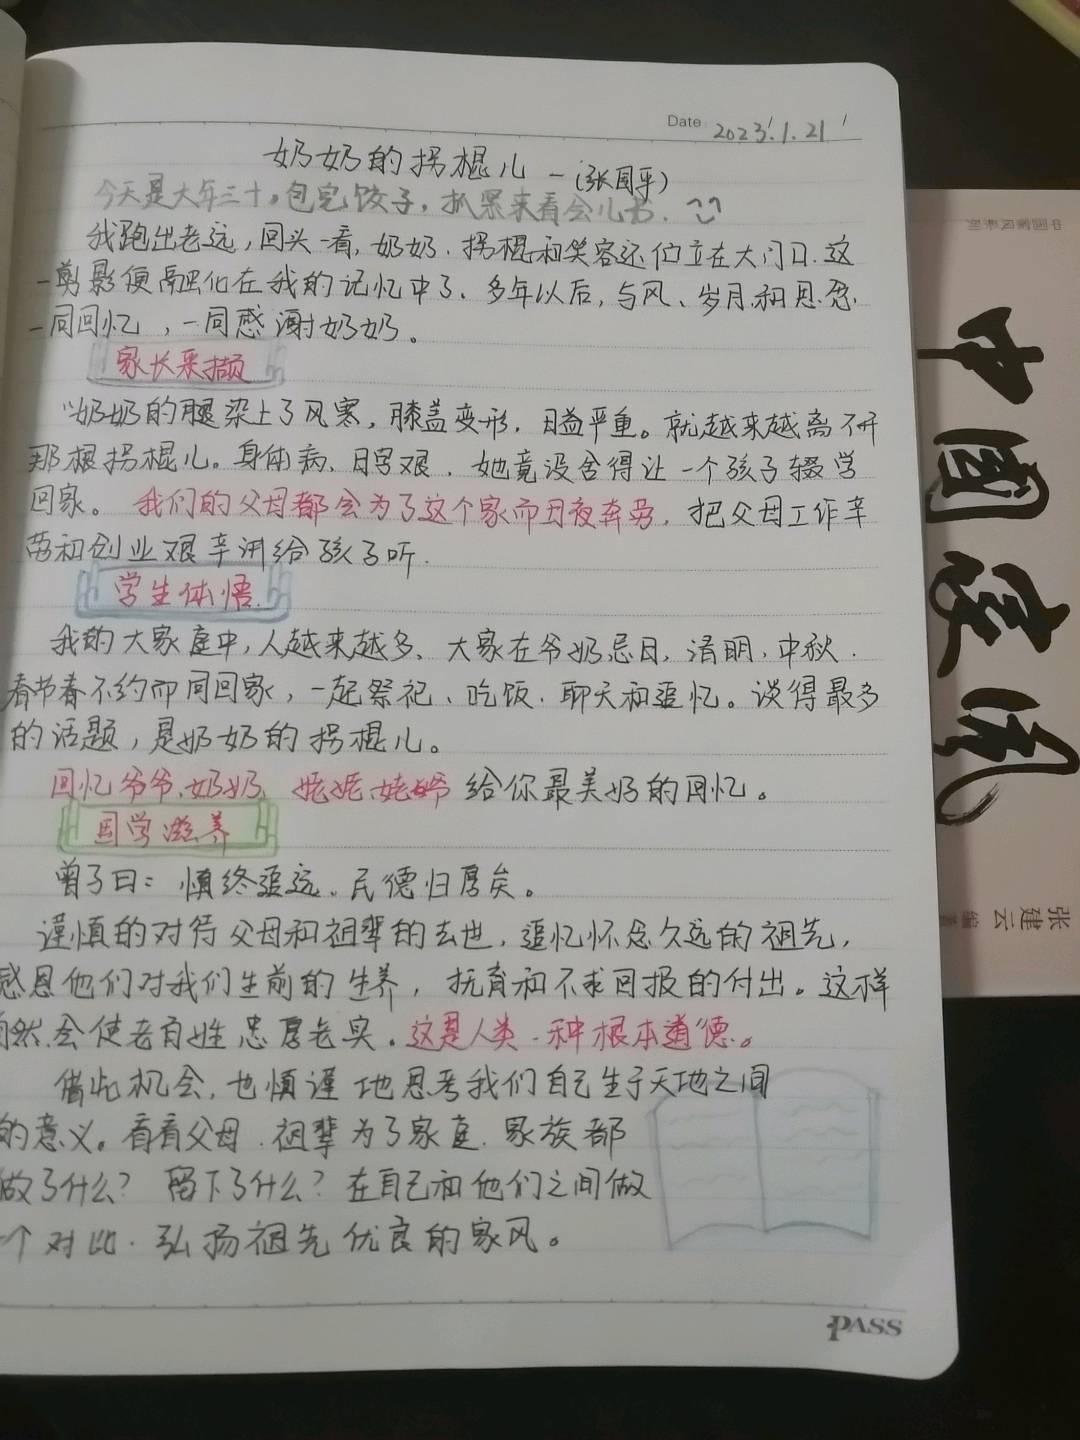 Date: 2023.1.21
奶奶的拐棍儿 —(张国平)
今天是大年三十。包完饺子，抓紧来看会儿书.
我跑出老远，回头一看，奶奶、拐棍和笑容还伫立在大门口.这
一剪影便融化在我的记忆中了、多年以后，与风、岁月和思念、
一同回忆，一同感谢奶奶。
家长采撷
奶奶的腿染上了风寒，膝盖变形，日益严重。就越来越离不开
那根拐棍儿。身体病、日害艰、她竟没舍得让一个孩子辍学
回家。我们的父母都会为了这个家而日夜奔劳，把父母工作辛
苦和创业艰辛讲给孩子听.
学生体悟.
我的大家庭中，人越来越多、大家在爷奶忌日、清明、中秋、
春节春不约而同回家，一起祭祀、吃饭、聊天和追忆。谈得最多
的话题，是奶奶的拐棍儿。
回忆爷爷、奶奶、姥姥、姥爷给你最美好的回忆。
国学滋养
曾子曰：慎终追远、民德归厚矣。
谨慎的对待父母和祖辈的去世，追忆怀念久远的祖先，
感恩他们对我们生前的生养，抚育和不求回报的付出。这样
自然会使老百姓忠厚老实。这是人类一种根本道德。
借此机会，也慎谨地思考我们自己生于天地之间
的意义。看看父母、祖辈为了家庭、家族都
做了什么？留下了什么？在自己和他们之间做
一个对比、弘扬祖先优良的家风。
PASS
中国家风系列
中国家风
张建云 编著